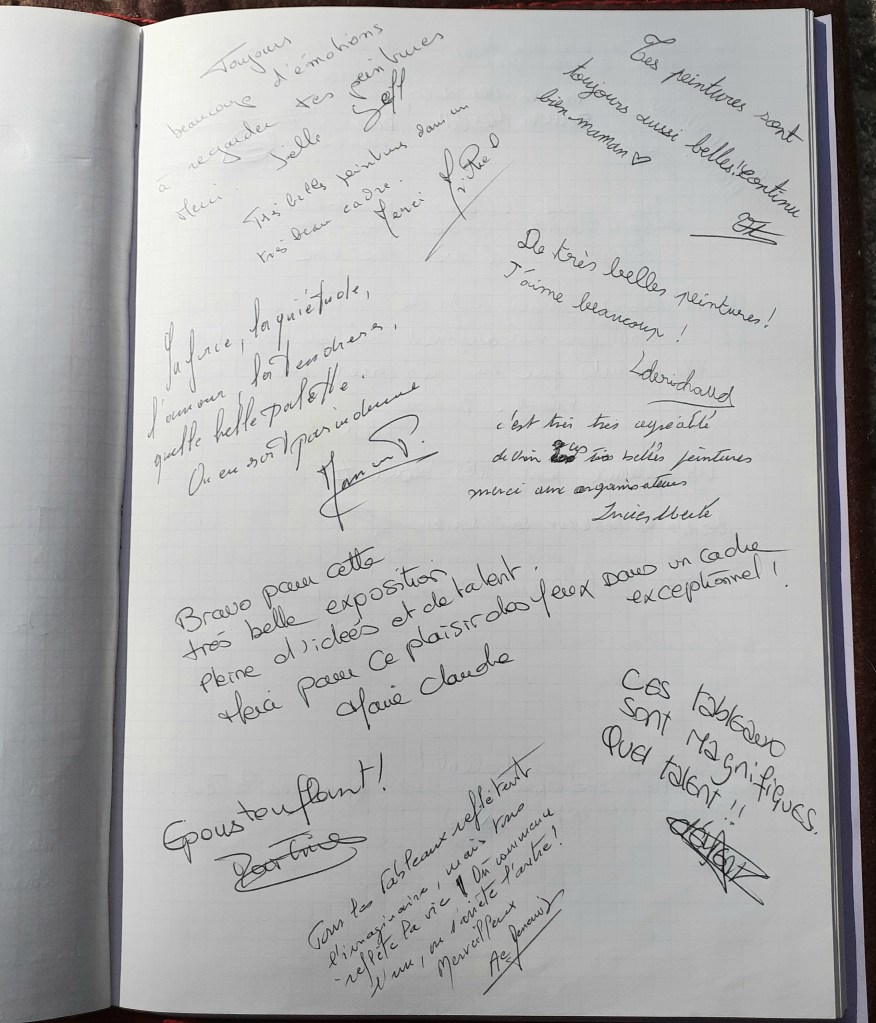 Toujours
beaucoup d'émotions
à regarder tes peintures
Merci. Joëlle
Très belles peintures dans un
très beau cadre.
Merci
Tes peintures sont
toujours aussi belles!! continu
bien maman ♡
De très belles peintures!
J'aime beaucoup !
Lderichaud
La force, la quiétude,
l'amour, la tendresse,
quelle belle palette.
On en sort pas indemne
c'est très très agréable
de voir ces très belles peintures
merci aux organisateurs
Bravo pour cette
très belle exposition
pleine d'idées et de talent.
Merci pour ce plaisir des yeux dans un cadre
exceptionnel !
Marie Claude
Ces tableaux
sont magnifiques.
Quel talent !!
Epoustouflant!
Tous les tableaux reflètent
l'imaginaire, mais tous
reflète la vie ! Où commence
l'un, où s'arrête l'autre!
Merveilleux